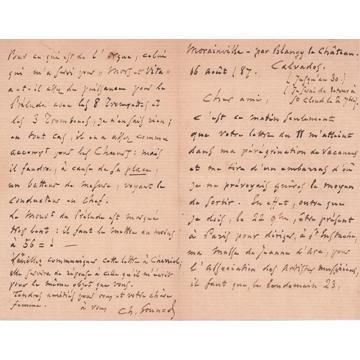 Morainville - par Blangy le Château.
Calvados.
16 Août / 87.
(Jusqu'au 30.)
St Cloud le
Cher ami,
C'est ce matin seulement
que votre lettre du 11 m'atteint
dans ma pérégrination de vacances
et me tire d'un embarras d'où
je ne prévoyais guères le moyen
de sortir. En effet, outre que
je dois, le 22 9bre, être présent
à Paris pour diriger, à St Eustache,
ma Messe de Jeanne d'Arc, pour
l'Association des Artistes musiciens,
il faut que, le lendemain 23,
Pour ce qui est de l'orgue, celui
qui m'a servi pour "Mors et Vita"
a-t-il assez de puissance pour le
Prélude avec les 8 Trompettes et
les 3 Trombones, je n'en sais rien; en
tout cas, il y en a assez comme
accompt pour les Chœurs: mais
il faudra, à cause de sa place,
un batteur de mesure, voyant le
conducteur en chef.
Le Mouvt du Prélude est marqué
trop lent: il faut le mettre au moins
à 56 = !
Veuillez communiquer cette lettre à
elle servira de réponse à celle qu'il m'écrit
pour le même objet que vous.
Tendres amitiés pour vous et votre chère
femme.
à vous
Ch. Gounod